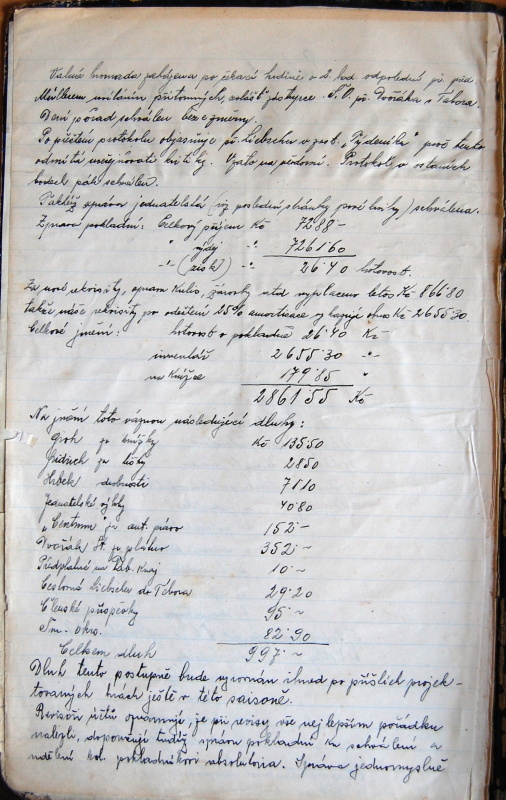 Valná hromada zahájena po čekací hodině o 2. hod. odpolední př. před
Müllerem uvítáním přítomných, zvláště zástupce Ú.O. př. Dvořáka z Tábora.
Denní pořad schválen beze změny.
Po přečtení protokolu objasňuje př. Liebscher v zast. „Týdeníku" proč tento
odmítá uveřejňovati kritiky. Vzato na vědomí. Protokol v ostatních
bodech pak schválen.
Taktéž zpráva jednatelská (viz poslední stránky prvé knihy) schválena.
Zpráva pokladní: Celkový příjem Kč 7288·-
" výdej -"- 7261·60
-"- (zisk) -"- 26·40 hotovost.
Za nové rekvisity, opravu kulis, žárovky atd. vyplaceno letos Kč 866·80
takže účet rekvisity, po odečtení 25% amortisace vykazuje obnos Kč 2655·30.
Celkové jmění: hotovost v pokladně 26·40 Kč
inventář 2655·30 -"-
na knížce 179·85 "
2861·55 Kč
Na jmění toto váznou následující dluhy:
Groh za knížky Kč 135·50
Jindrich za 28·50
Hrbek drobnosti 78·10
Jednatelské výlohy 40·80
„Centrum" za aut. právo 152·-
Dvořák St. za 352·-
Předplatné na Táb. Kraj 10·-
Cestovné Liebscher do Tábora 29·20
Členské příspěvky 95·-
82·90
Celkem dluh 997·-
Dluh tento postupně bude vyrovnán ihned po příštích projek-
tovaných hrách ještě v této saisoně.
Revisoři účtů oznamují, že při revisi vše v nejlepším pořádku
nalezli, doporučují tudíž zprávu pokladní ku schválení a
udělení kol. pokladníkovi absolutoria. Zpráva jednomyslně